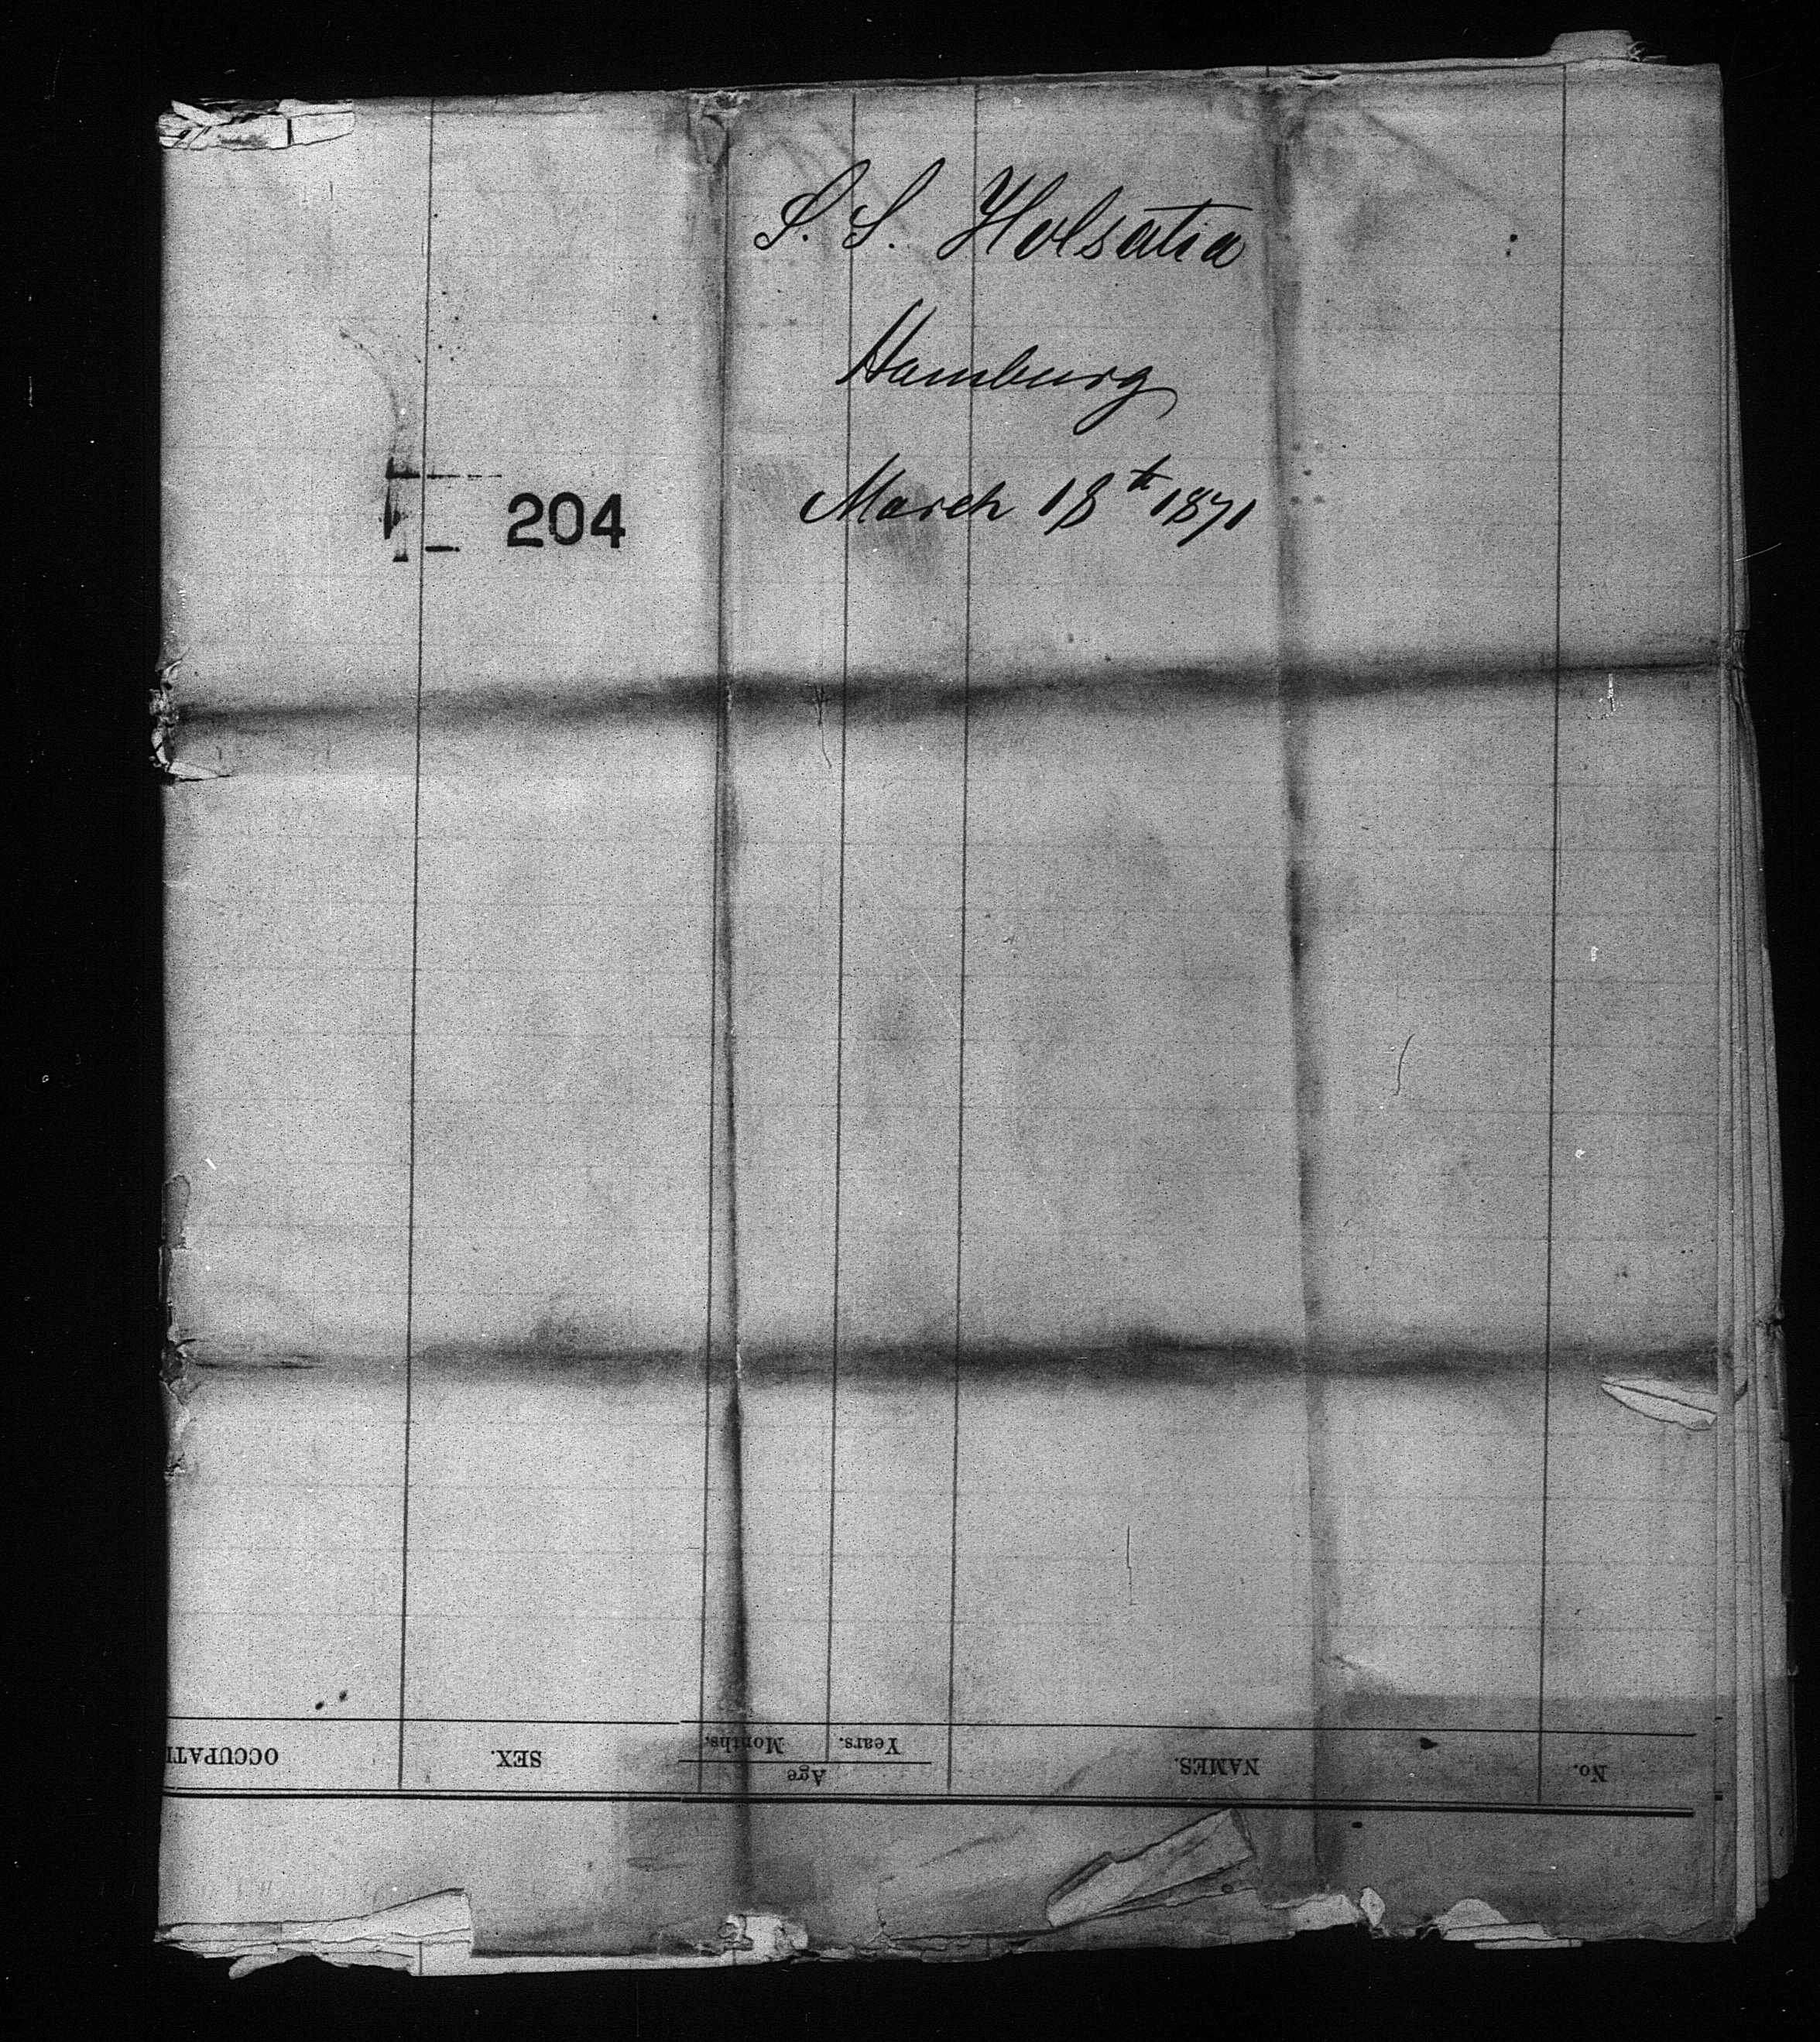 S. S. Holsatia
Hamburg
March 18th 1871
204
No.
NAMES.
Age
Years.
Months.
SEX.
OCCUPATI